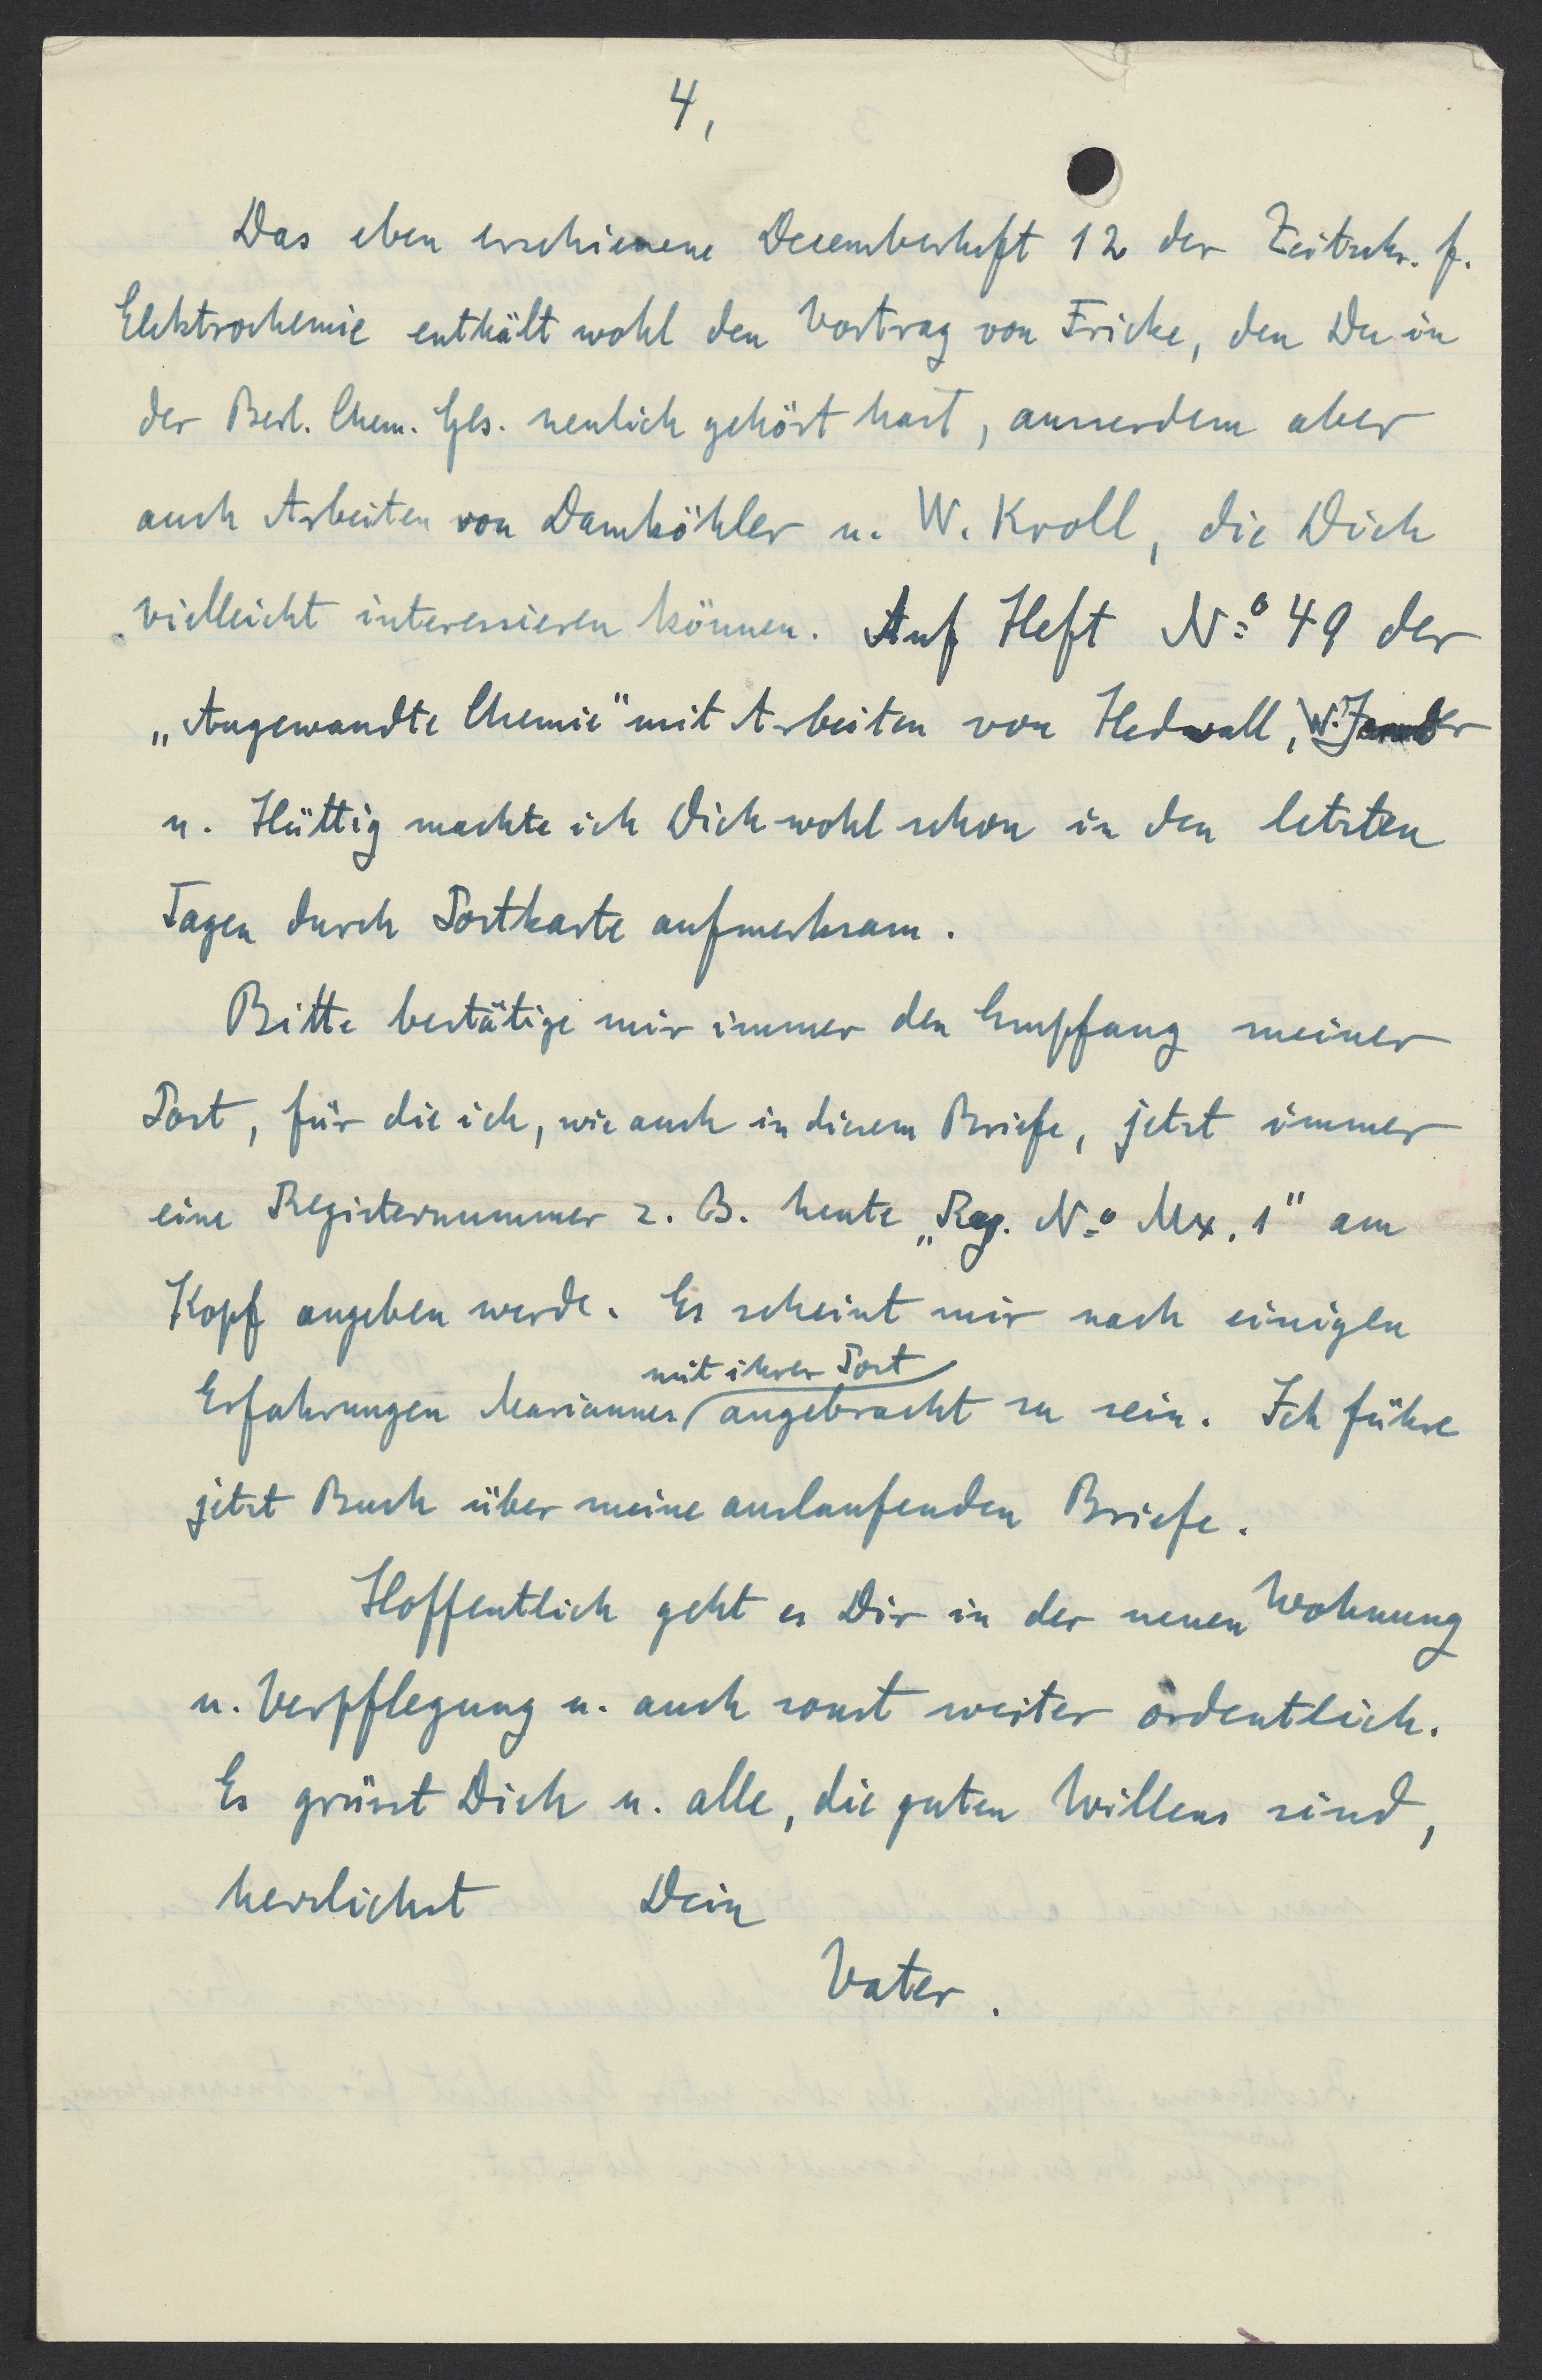 4,
Das eben erschienene Decemberheft 12 der Zeitschr. f.
Elektrochemie enthält wohl den Vortrag von Fricke, den Du in
der Berl. Chem. Ges. neulich gehört hast, ausserdem aber
auch Arbeiten von Damköhler u. W. Kroll, die Dich
vielleicht interessieren können. Auf Heft No 49 der
„Angewandte Chemie" mit Arbeiten von Hedvall, W. Jander
u. Hüttig machte ich Dich wohl schon in den letzten
Tagen durch Postkarte aufmerksam.
Bitte bestätige mir immer den Empfang meiner
Post, für die ich, wie auch in diesem Briefe, jetzt immer
eine Registernummer z. B. heute „Reg. No Mx. 1" am
Kopf angeben werde. Es scheint mir nach einigen
mit ihrer Post
Erfahrungen Mariannes angebracht zu sein. Ich führe
jetzt Buch über meine auslaufenden Briefe.
Hoffentlich geht es Dir in der neuen Wohnung
u. Verpflegung u. auch sonst weiter ordentlich.
Es grüsst Dich u. alle, die guten Willens sind,
herzlichst Dein
Vater.